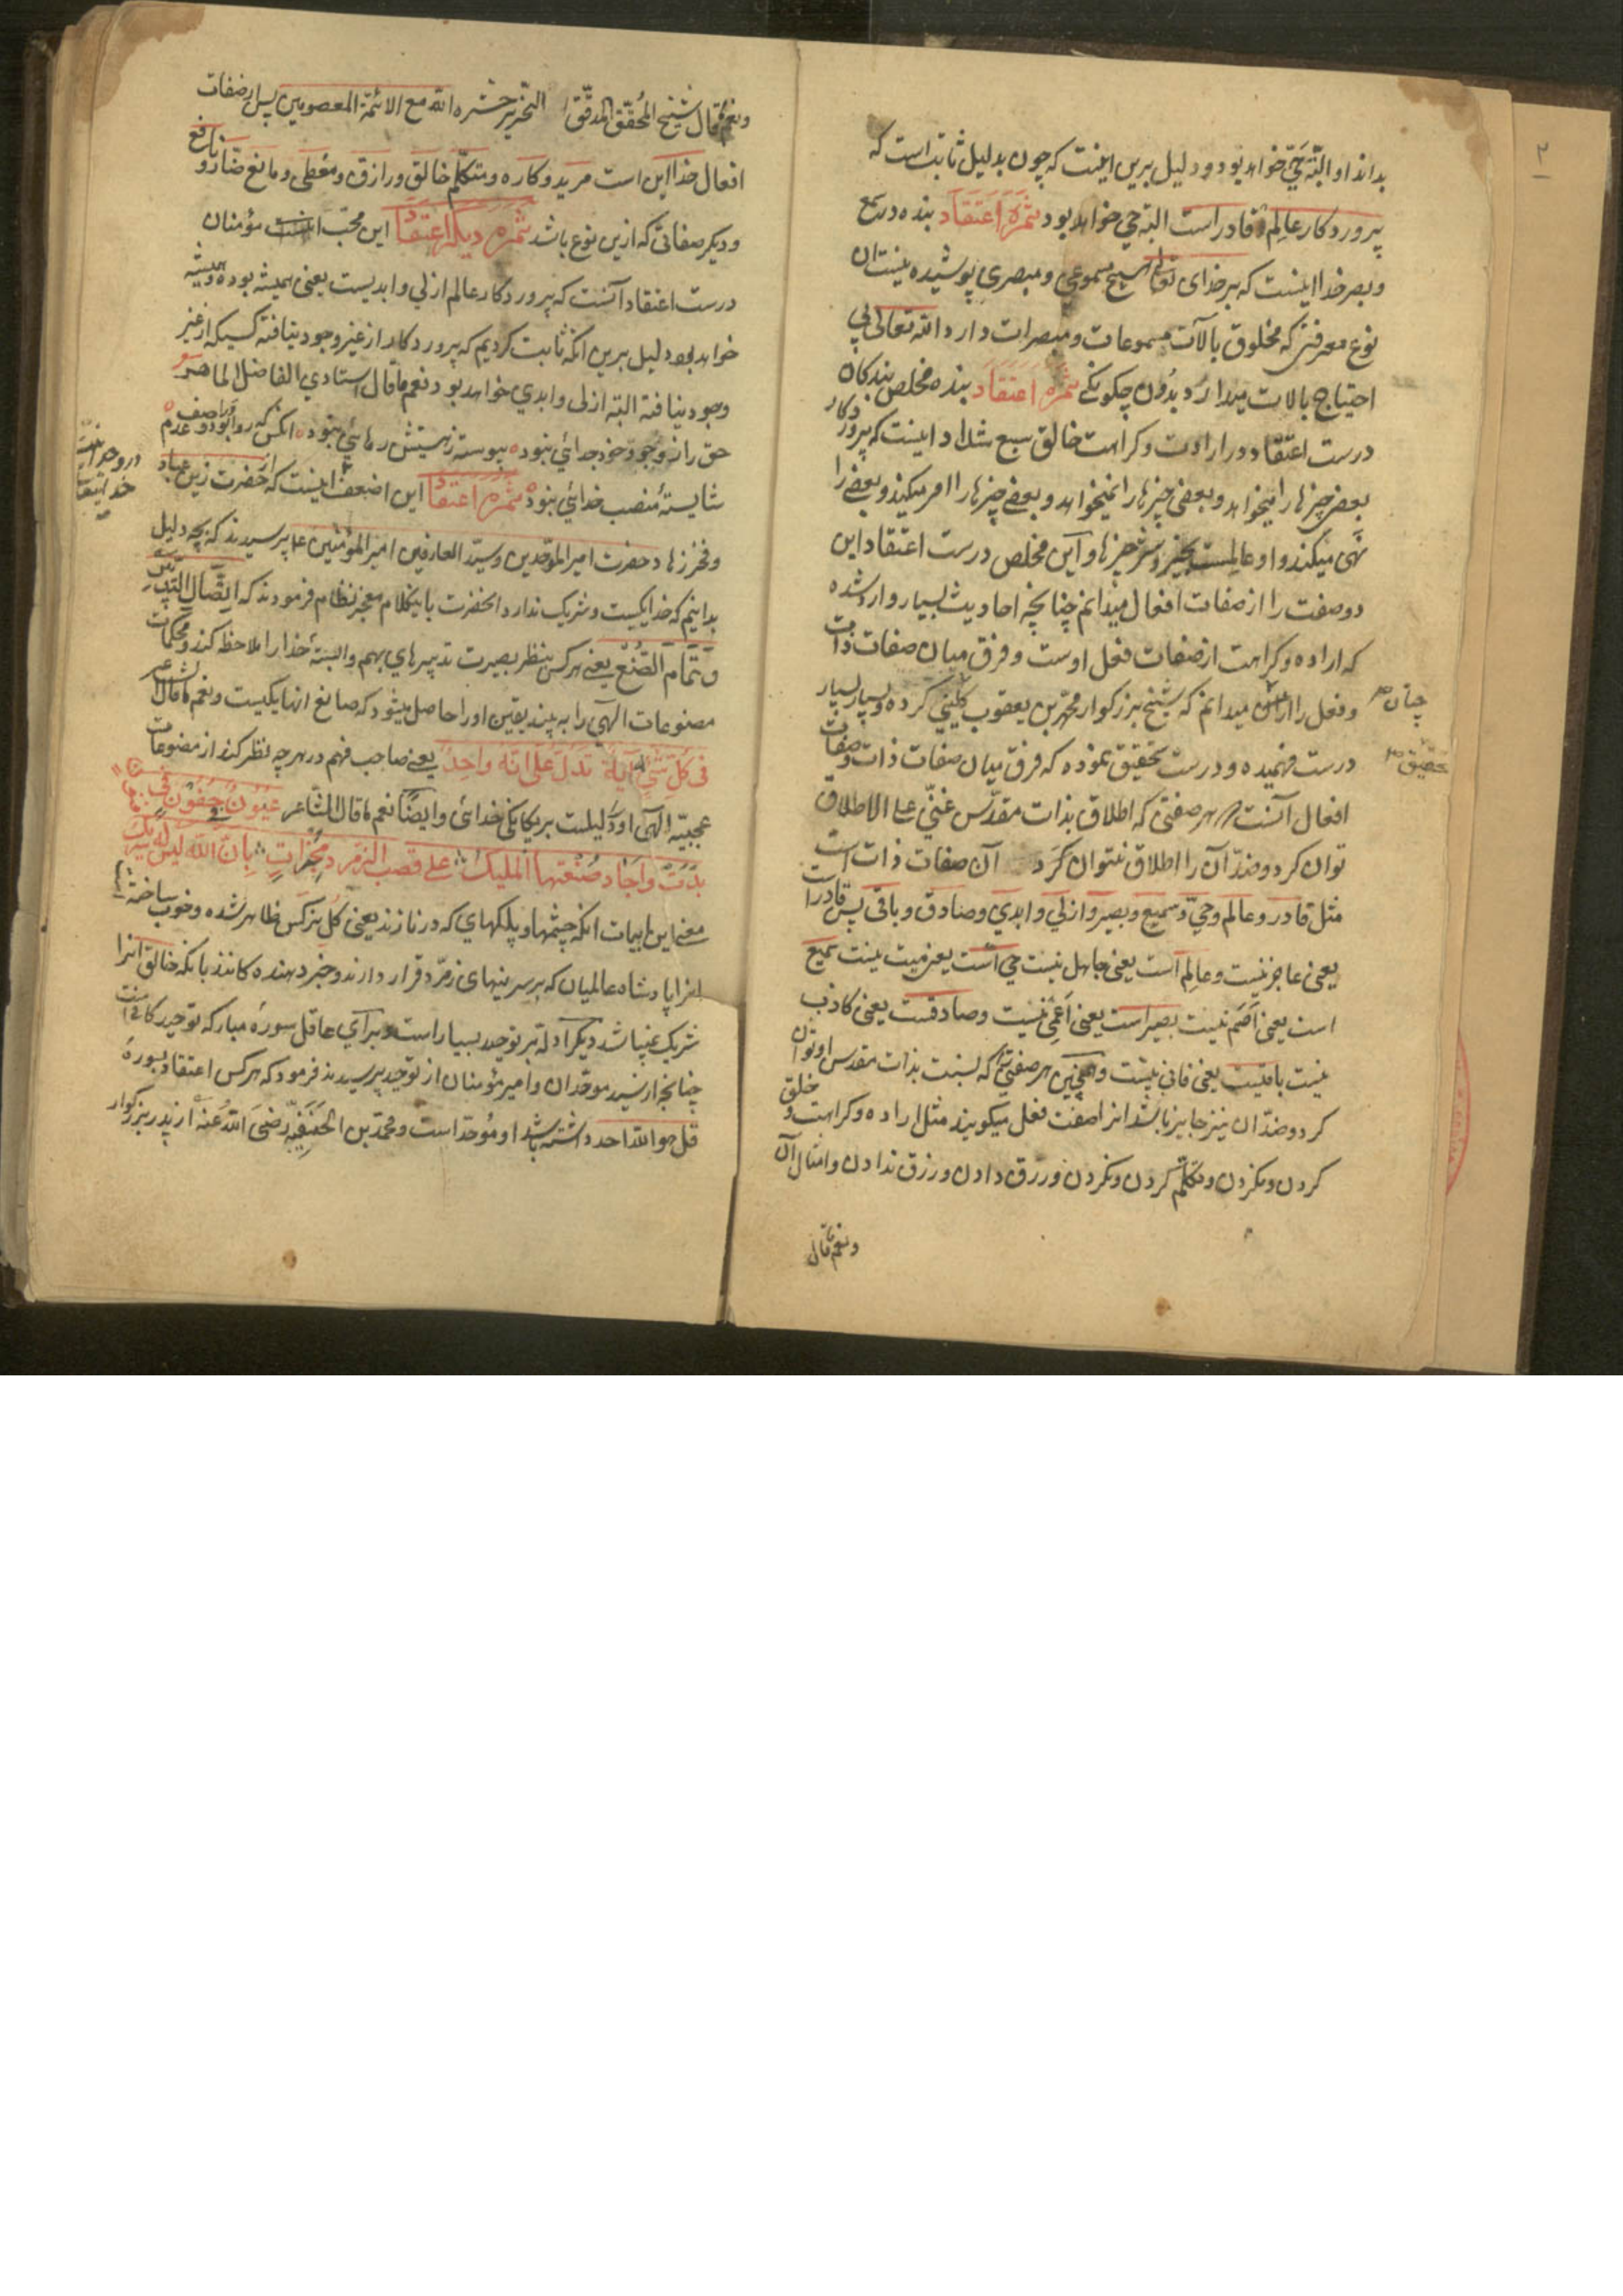 ٢
بداند او البته حیّ خواهد بود و دلیل برین اینست که چون بدلیل ثابت است که
پروردکار عالم قادر است البته حی خواهد بود ثمره اعتقاد بنده در سمع
و بصر خدا اینست که بر خدای تعالی هیچ مسموعی و مبصری پوشیده نیست ان
نوع معرفتی که مخلوق بالآت مسموعات و مبصرات دارد الله تعالی بی
احتیاج بالات میدارد بدون چکونکی ثمره اعتقاد بنده مخلص بندکان
درست اعتقاد در ارادت و کراهت خالق سبع شداد اینست که پروردکار
بعضی چیزها را میخواهد و بعضی چیزها را نمیخواهد و بعضی چیزها را امر میکند و بعضی را
نهی میکند و او عالمست بخیر و شر چیزها و این مخلص درست اعتقاد این
دو صفت را از صفات افعال میدانم چنانچه احادیث بسیار وارد شده
که اراده و کراهت از صفات فعل اوست و فرق میان صفات ذات
و فعل را میدانم که شیخ بزرکوار محمد بن یعقوب کلینی کرده و بسیار بسیار
چنان
درست فهمیده و درست تحقیق نموده که فرق میان صفات ذات و صفات
تحقیق
افعال آنست هر صفتی که اطلاق بذات مقدّس غنیّ علی الاطلاق
توان کرد و ضدّ آن را اطلاق نتوان کرد آن صفات ذات است
مثل قادر و عالم و حیّ و سمیع و بصیر و ازلی و ابدی و صادق و باقی پس قادر است
یعنی عاجز نیست و عالم است یعنی جاهل نیست حی است یعنی میت نیست سمیع
است یعنی اَصَم نیست بصیر است یعنی اَعْمی نیست و صادقست یعنی کاذب
نیست باقیست یعنی فانی نیست و همچنین هر صفتی که نسبت بذات مقدس او توان
کرد و ضدّ ان نیز جایز باشد انرا صفت فعل میکویند مثل اراده و کراهت و خلق
کردن و نکردن و تکلّم کردن و نکردن و رزق دادن و رزق ندادن و امثال آن
و نعم ما قال
و نعم ما قال شیخ المُحقّق المدقّق النحریر حشره الله مع الائمّة المعصومین پس از صفات
افعال خدا این است مرید و کاره و متکلّم خالق و رازق و معطی و مانع ضارّ و نافع
و دیکر صفاتی که ازین نوع باشد ثمره دیکر اعتقاد این محبّ مؤمنان
درست اعتقاد آنست که پروردکار عالم ازلی و ابدیست یعنی همیشه بوده و همیشه
خواهد بود دلیل برین انکه ثابت کردیم که پروردکار از غیر وجود نیافته کسیکه از غیر
وجود نیافته البته ازلی و ابدی خواهد بود و نعم ما قال استادی الفاضل الماهر
حق را ز وجود خود جدائی نبود پیوسته ز هستیش رهائی نبود انکس که روا بود
شایستهٔ منصب خدائی نبود ثمره اعتقاد این اضعف اینست که از حضرت زین عباد
در وحدانیت خدایتعالی
و فخر زهاد حضرت امیر الموحّدین و سیّد العارفین امیر المؤمنین پرسیدند که بچه دلیل
بدانیم که خدا یکیست و شریک ندارد انحضرت باینکلام معجز نظام فرمودند که ایصّال التدبیر
وَتَمَامُ الصُّنْع یعنی هر کس بنظر بصیرت تدبیرهای بهم وابستهٔ خدا را ملاحظه کند و محکمات
مصنوعات الهی را به بیند یقین او را حاصل میشود که صانع انها یکیست و نعم ما قال الشاعر
فی کلّ شیء له ایة تدل علی انه واحد یعنی صاحب فهم در هر چه نظر کند از مصنوعات
عجیبه الهی او دلیلست بر یکانکی خدائی وایضًا نعم ما قال الشاعر عُیُونٌ جُفُونٍ فی
بدت واجاد صنعتها الملیک علی قصب الزمرد مخبرات بان الله لیس له شریک
معنی این ابیات انکه چشمها و پلکهای که در نازند یعنی کل نرکس ظاهر شده و خوب ساخته
انرا پادشاه عالمیان که بر سر نیهای زمرّد قرار دارند و خبر دهنده کانند بانکه خالق انرا
شریک نمیباشد و دیکر ادلّه بر توحید بسیار است و برای عاقل سورهٔ مبارکه توحید کافیست
چنانچه از سید موحّدان و امیر مؤمنان از توحید پرسیدند فرمود که هر کس اعتقاد بسورهٔ
قل هو الله احد داشته باشد او مُوحّد است و محمّد بن الحَنَفِیّه رَضِیَ اللهُ عَنهُ از پدر بزرکوار